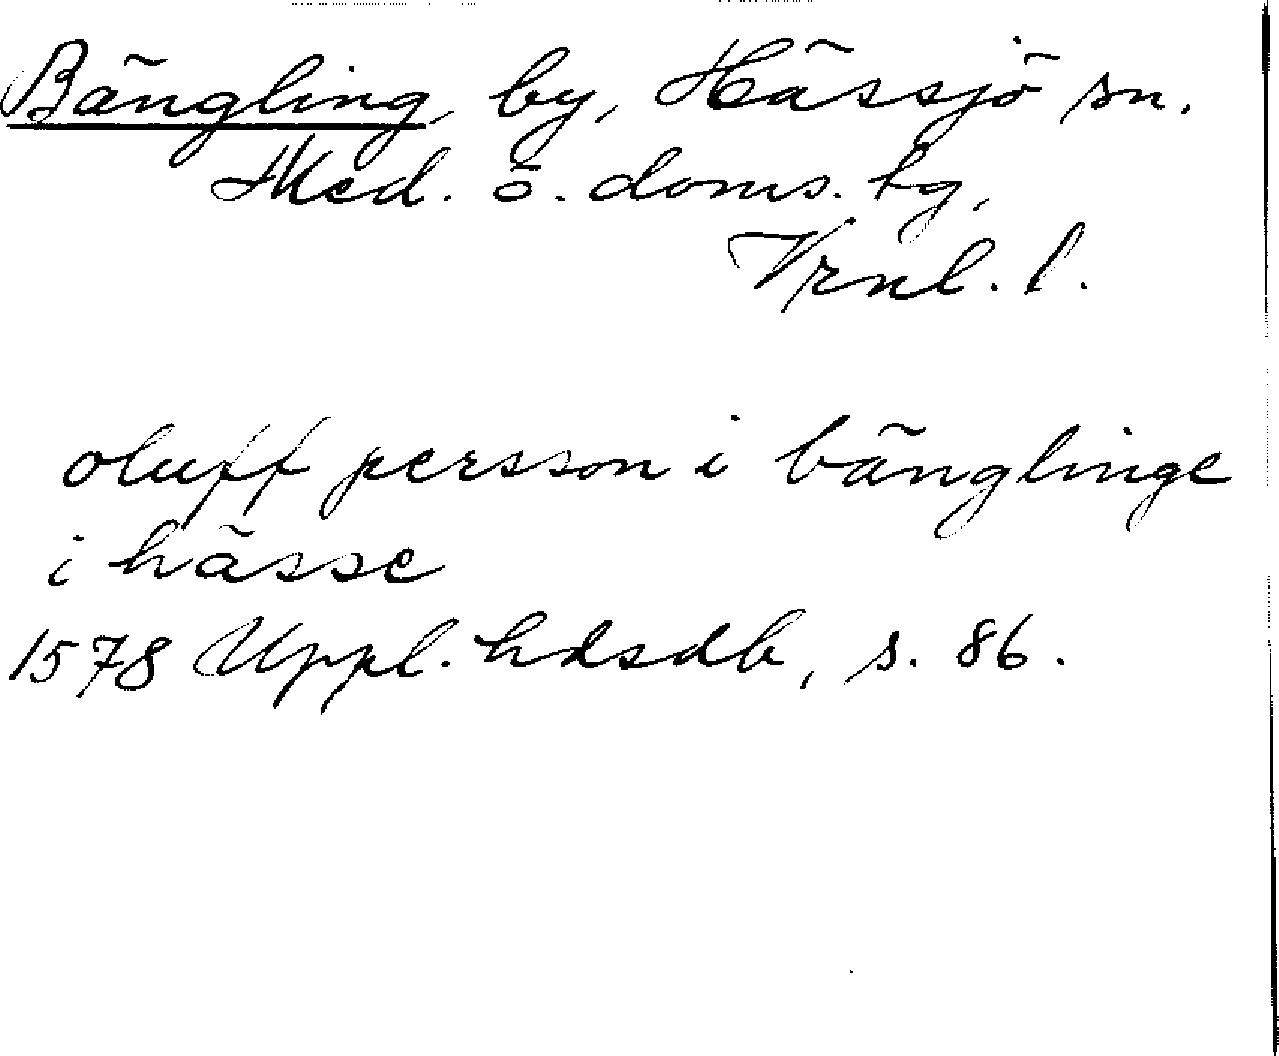 Bängling, by, Hässjö sn.
Med. ö. doms. tg,
Vrnl. l.
oluff persson i bänglinge
i hässe
1578 Uppl. hdsdb, s. 86.